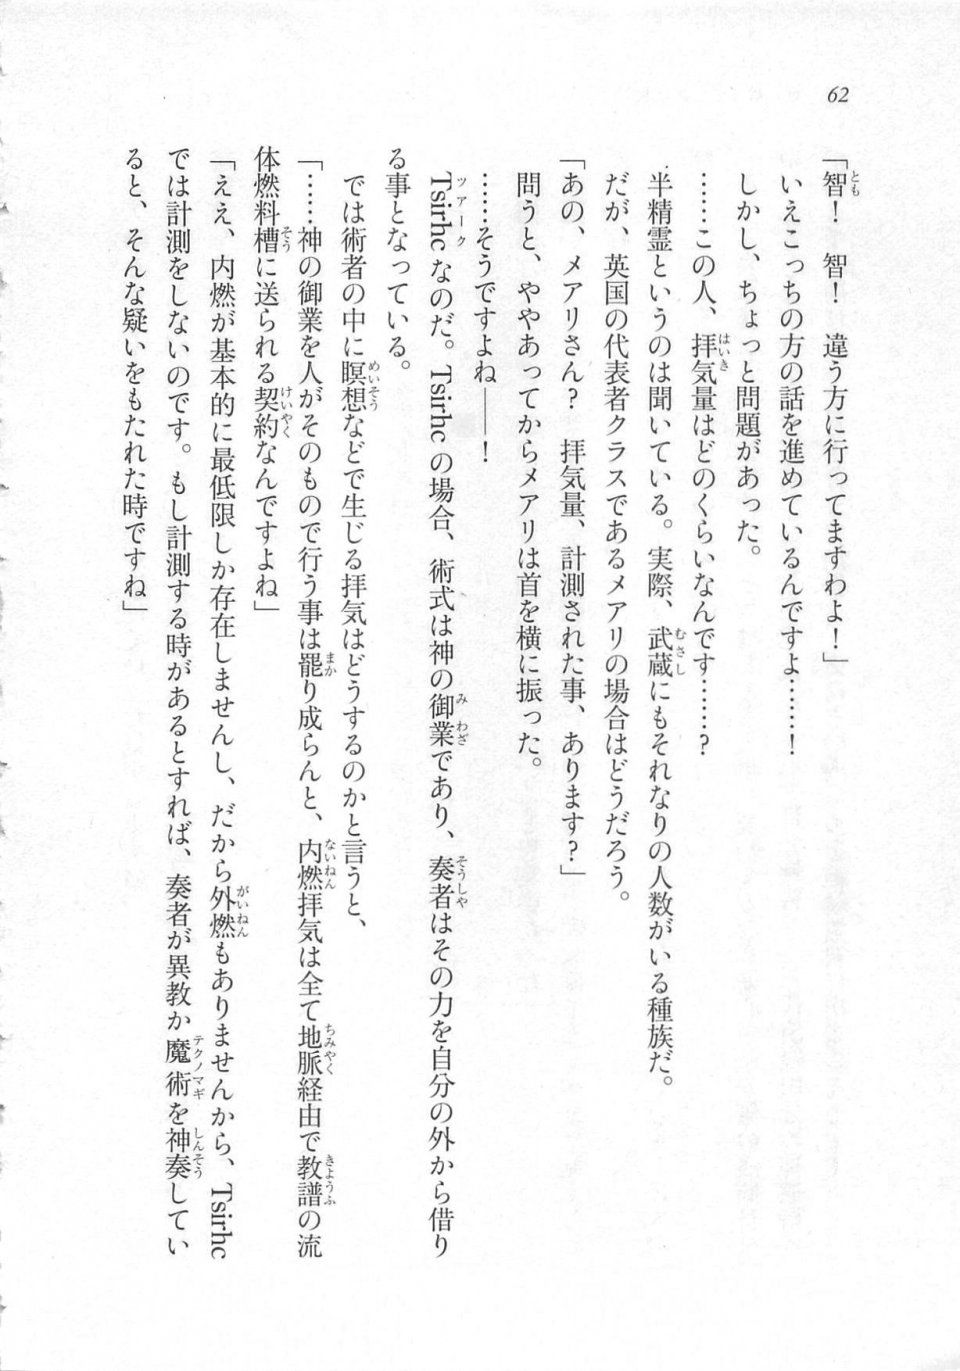 62
「智！　智！　違う方に行ってますわよ！」
いえこっちの方の話を進めているんですよ……！
しかし、ちょっと問題があった。
……この人、拝気量はどのくらいなんです……？
半精霊というのは聞いている。実際、武蔵にもそれなりの人数がいる種族だ。
だが、英国の代表者クラスであるメアリの場合はどうだろう。
「あの、メアリさん？　拝気量、計測された事、あります？」
問うと、ややあってからメアリは首を横に振った。
……そうですよね——！
Tsirhcなのだ。Tsirhcの場合、術式は神の御業であり、奏者はその力を自分の外から借り
る事となっている。
では術者の中に瞑想などで生じる拝気はどうするのかと言うと、
「……神の御業を人がそのもので行う事は罷り成らんと、内燃拝気は全て地脈経由で教譜の流
体燃料槽に送られる契約なんですよね」
「ええ、内燃が基本的に最低限しか存在しませんし、だから外燃もありませんから、Tsirhc
では計測をしないのです。もし計測する時があるとすれば、奏者が異教か魔術を神奏してい
ると、そんな疑いをもたれた時ですね」